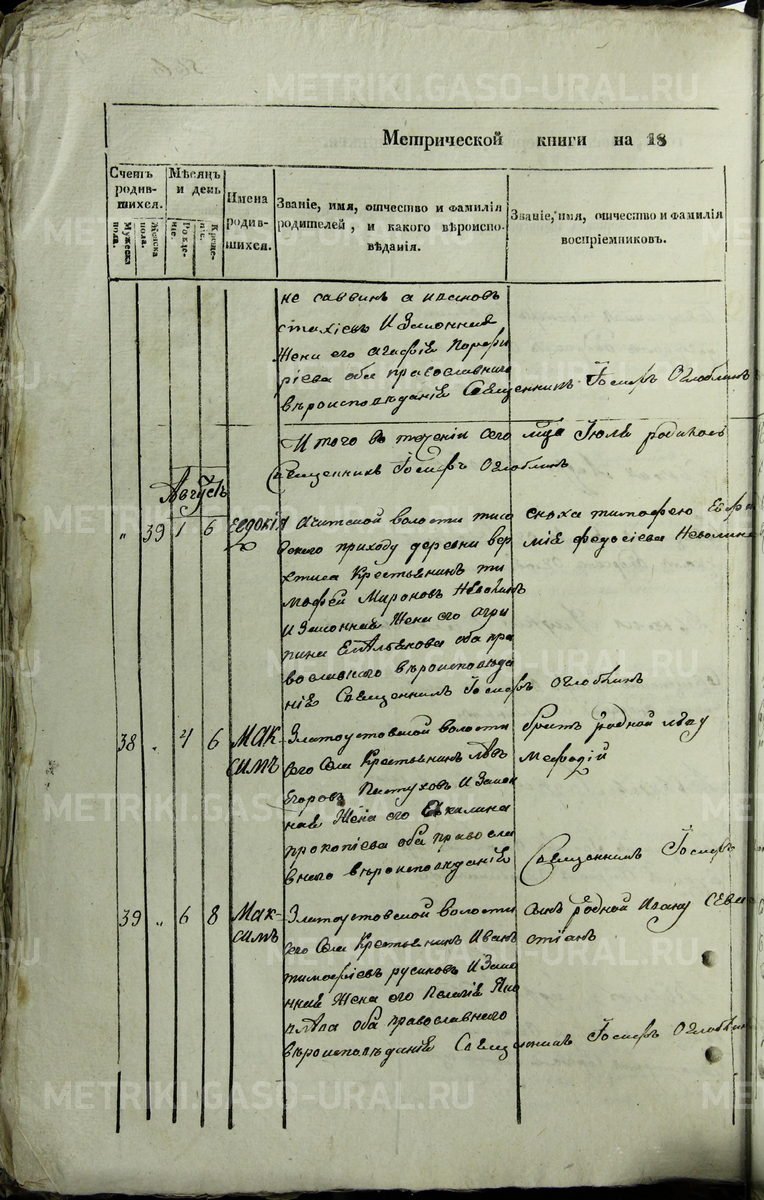 METRIKI.GASO-URAL.RU
Метрической книги на 18
Счетъ родившихся.
Мужеска пола.
Женска пола.
Мѣсяцъ и день
Рожденіе.
Крещеніе.
Имена родившихся.
Званіе, имя, отчество и фамилія родителей, и какого вѣроисповѣданія.
Званіе, имя, отчество и фамилія воспріемниковъ.
не саввинъ а ивановъ
стахіевъ И Законная
Жена его агафія Порфи
ріева оба православнаго
вѣроисповѣданія Священникъ Іосифъ Оглоблинъ
Итого въ теченіи сего мца Іюля родилось
Священникъ Іосифъ Оглоблинъ
Августъ
" 39 1 6 Евдокія
Ачитской волости тисо
вскаго приходу деревни вер
хтиса Крестьянинъ ти
мофей Мироновъ Неволинъ
И Законная Жена его агри
пина Емельянова оба пра
вославнаго вѣроисповѣда
нія Священникъ Іосифъ Оглоблинъ
сноха тимофею Евфи
мія федосіева Неволина
38 " 4 6 Мак
симъ
Златоустовской волости
сего села Крестьянинъ левъ
Егоровъ Пастуховъ И Закон
ная Жена его Акилина
прокопіева оба правосла
внаго вѣроисповѣданія
братъ родной льву
мефодій
Священникъ Іосифъ
39 " 6 8 Мак-
симъ
Златоустовской волости
сего села Крестьянинъ Иванъ
тимофіевъ русиновъ И Зако
нная Жена его Пелагія
оба православнаго
вѣроисповѣданія Священникъ Іосифъ Оглоблинъ
сынъ родной Ивану Сева
стіанъ